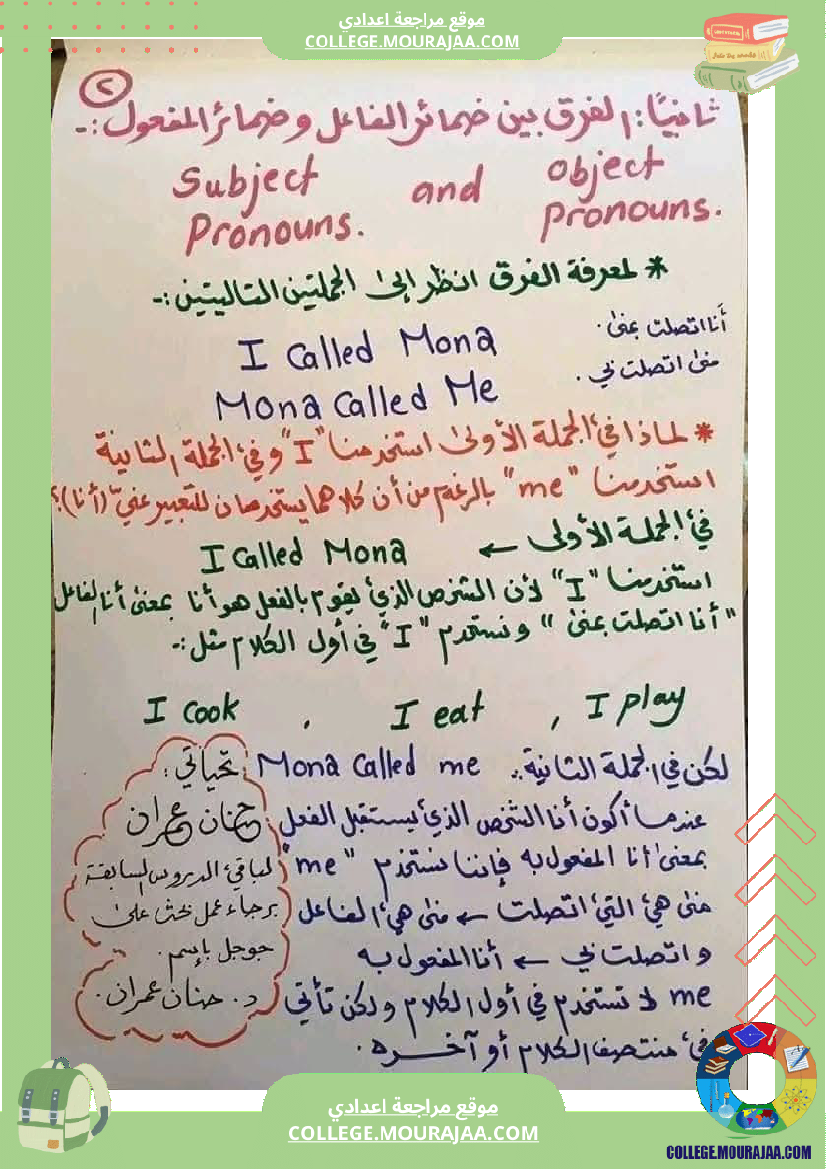 موقع مراجعة اعدادي
COLLEGE.MOURAJAA.COM
٢
ثانيًا: الفرق بين ضمائر الفاعل وضمائر المفعول:-
Subject Pronouns. and object pronouns.
* لمعرفة الفرق انظر إلى الجملتين التاليتين:-
I called Mona أنا اتصلت بمنى.
Mona called Me منى اتصلت بي.
* لماذا في الجملة الأولى استخدمنا "I" وفي الجملة الثانية
استخدمنا "me" بالرغم من أن كلاهما يستخدمان للتعبير عني (أنا)؟
في الجملة الأولى ← I called Mona
استخدمنا "I" لأن الشخص الذي يقوم بالفعل هو أنا بمعنى أنا الفاعل
"أنا اتصلت بمنى" ونستخدم "I" في أول الكلام مثل:-
I cook , I eat , I play
لكن في الجملة الثانية.. Mona called me
عندما أكون أنا الشخص الذي يستقبل الفعل
بمعنى أنا المفعول به فإننا نستخدم "me"
منى هي التي اتصلت ← منى هي الفاعل
واتصلت بي ← أنا المفعول به
me لا تستخدم في أول الكلام ولكن تأتي
في منتصف الكلام أو آخره.
تحياتي:
حنان عمران
لباقي الدروس السابقة
برجاء عمل بحث على
جوجل بإسم.
د. حنان عمران.
موقع مراجعة اعدادي
COLLEGE.MOURAJAA.COM
COLLEGE.MOURAJAA.COM